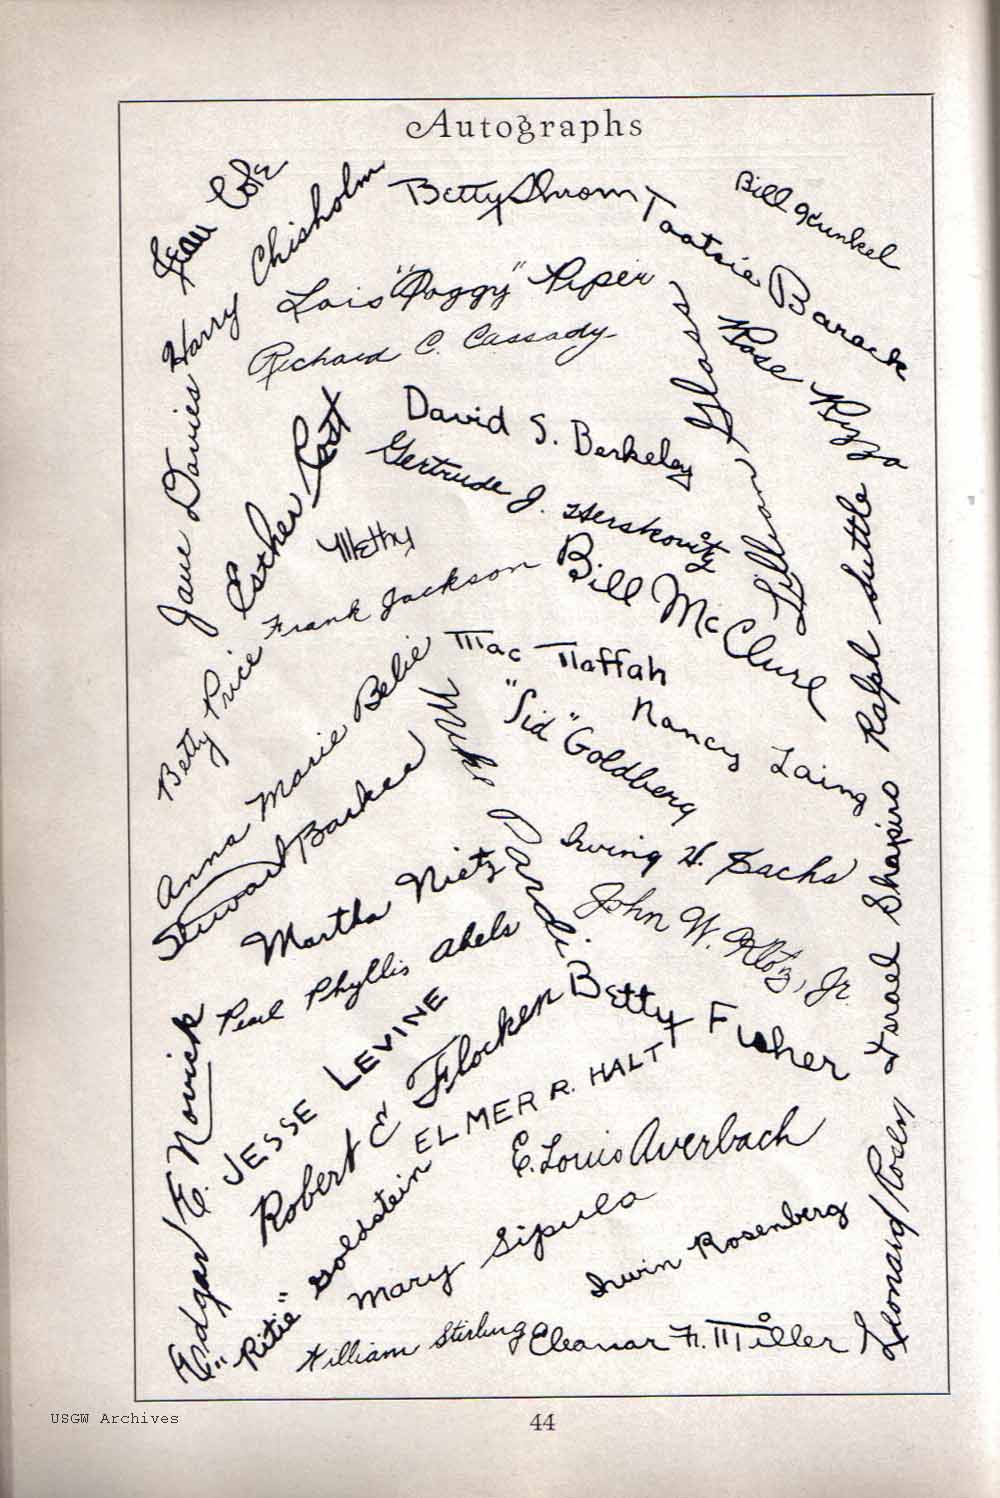 Autographs
Jean Cole
Harry Chisholm
Betty Shrom
Tootsie Barack
Bill Kunkel
Lois "Poggy" Piper
Richard C. Cassady
Lillian Glass
Rose Rizzo
Jane Davies
Esther Post
David S. Berkeley
Gertrude J. Herskovitz
Frank Jackson
Bill McClure
Ralph Suttle
Betty Price
Mac Naffah
Nancy Laing
"Sid" Goldberg
Anna Marie Belie
Stewart Barkee
Pardi
Irving H. Sachs
John W. Klotz, Jr.
Israel Shapiro
Martha Nietz
Pearl Phyllis Abels
Betty Fisher
Edgar E. Novick
JESSE LEVINE
Robert E Flocken
ELMER R. HALT
E. Louis Averbach
"Ritie" Goldstein
Mary Sipula
Irwin Rosenberg
Leonard Rosen
William Sterling
Eleanor F. Miller
USGW Archives
44